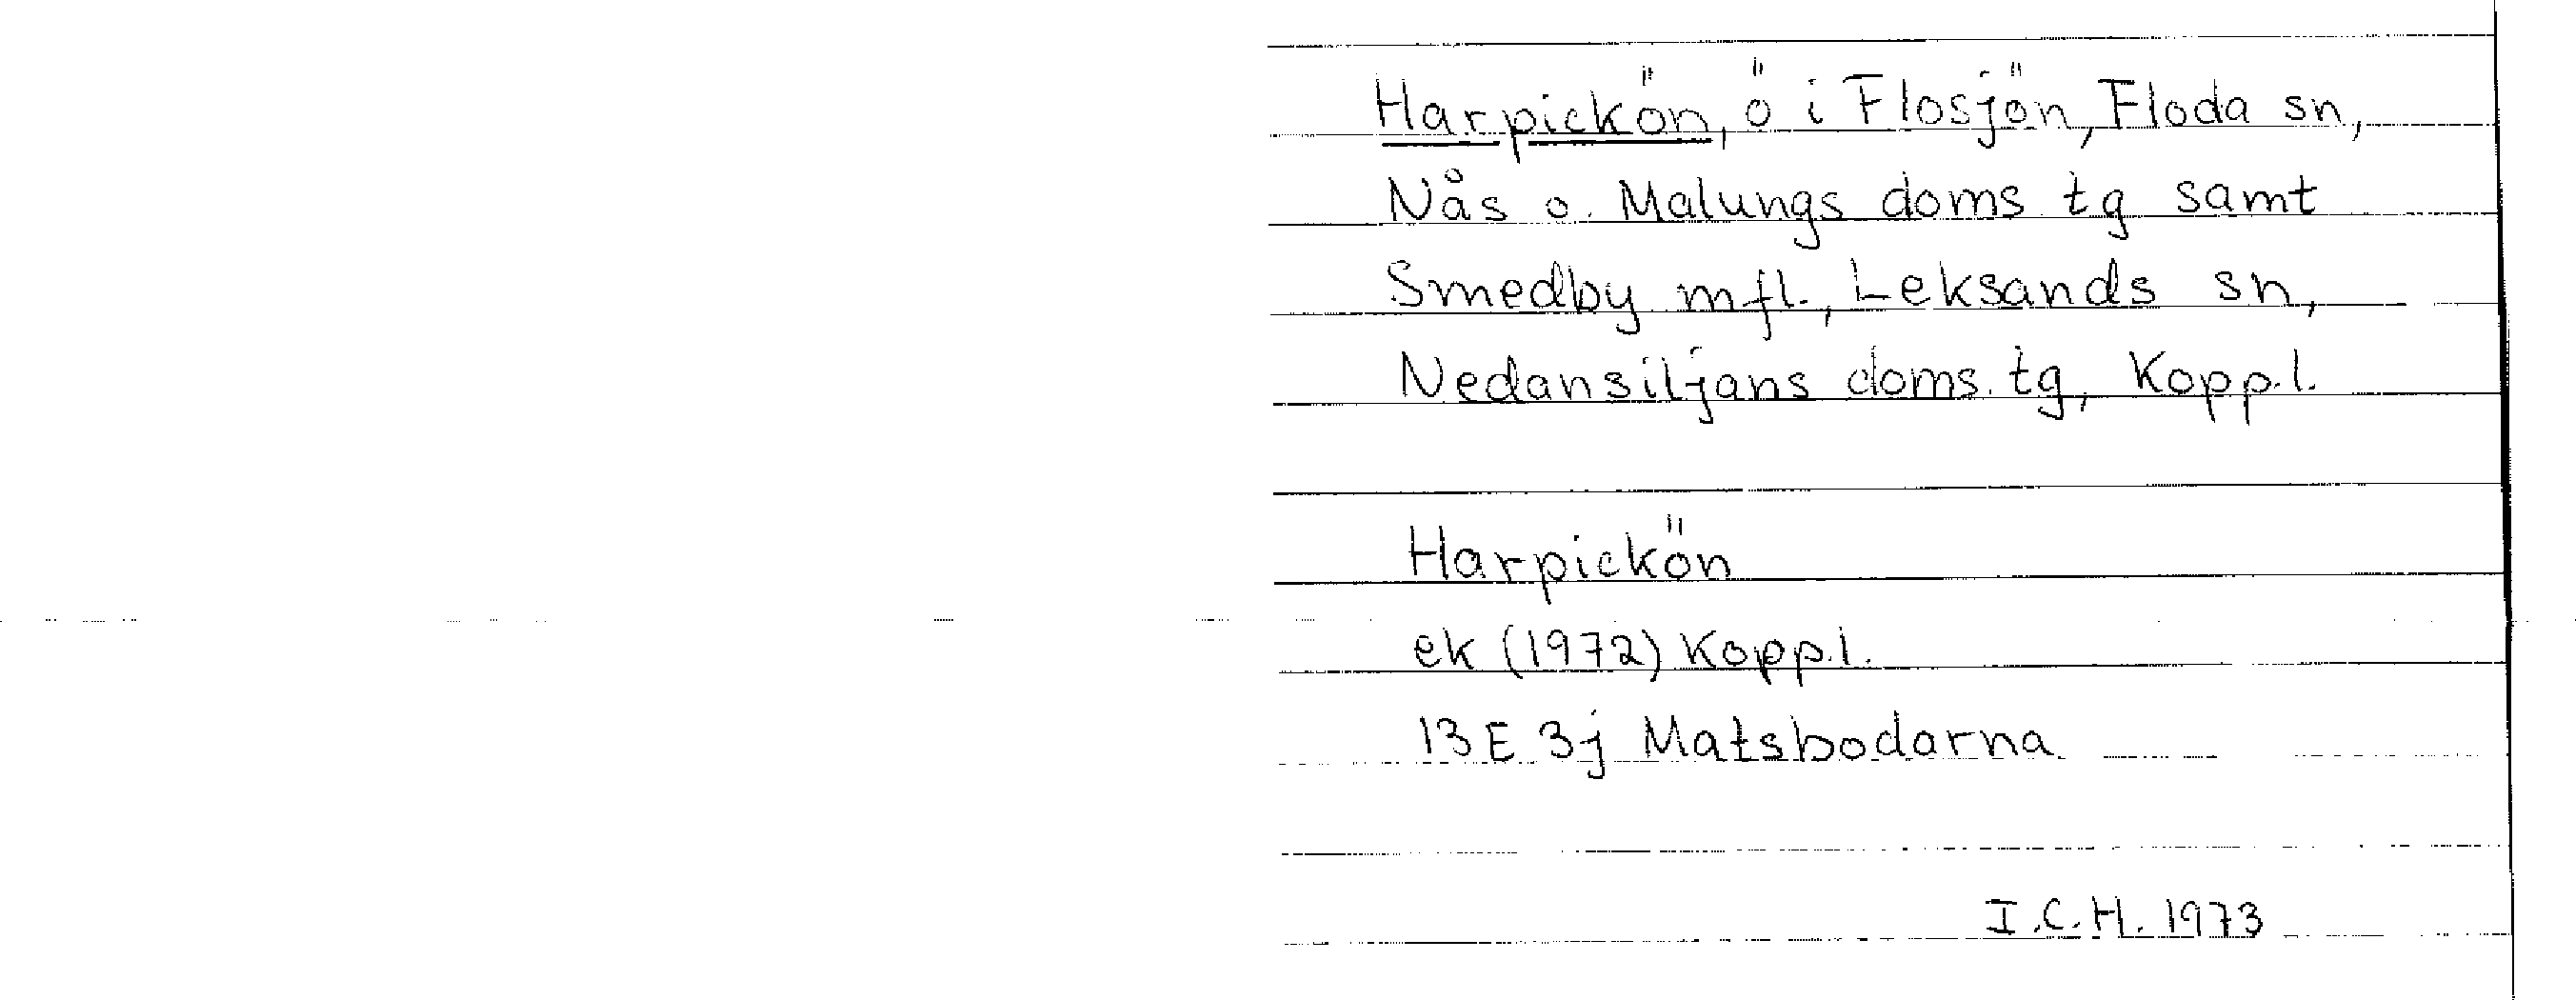 Harpickön, ö i Flosjön, Floda sn,
Nås o. Malungs doms. tg samt
Smedby mfl., Leksands sn,
Nedansiljans doms. tg, Kopp.l.
Harpickön
ek (1972) Kopp.l.
13E 3j Matsbodarna
I.C.H. 1973